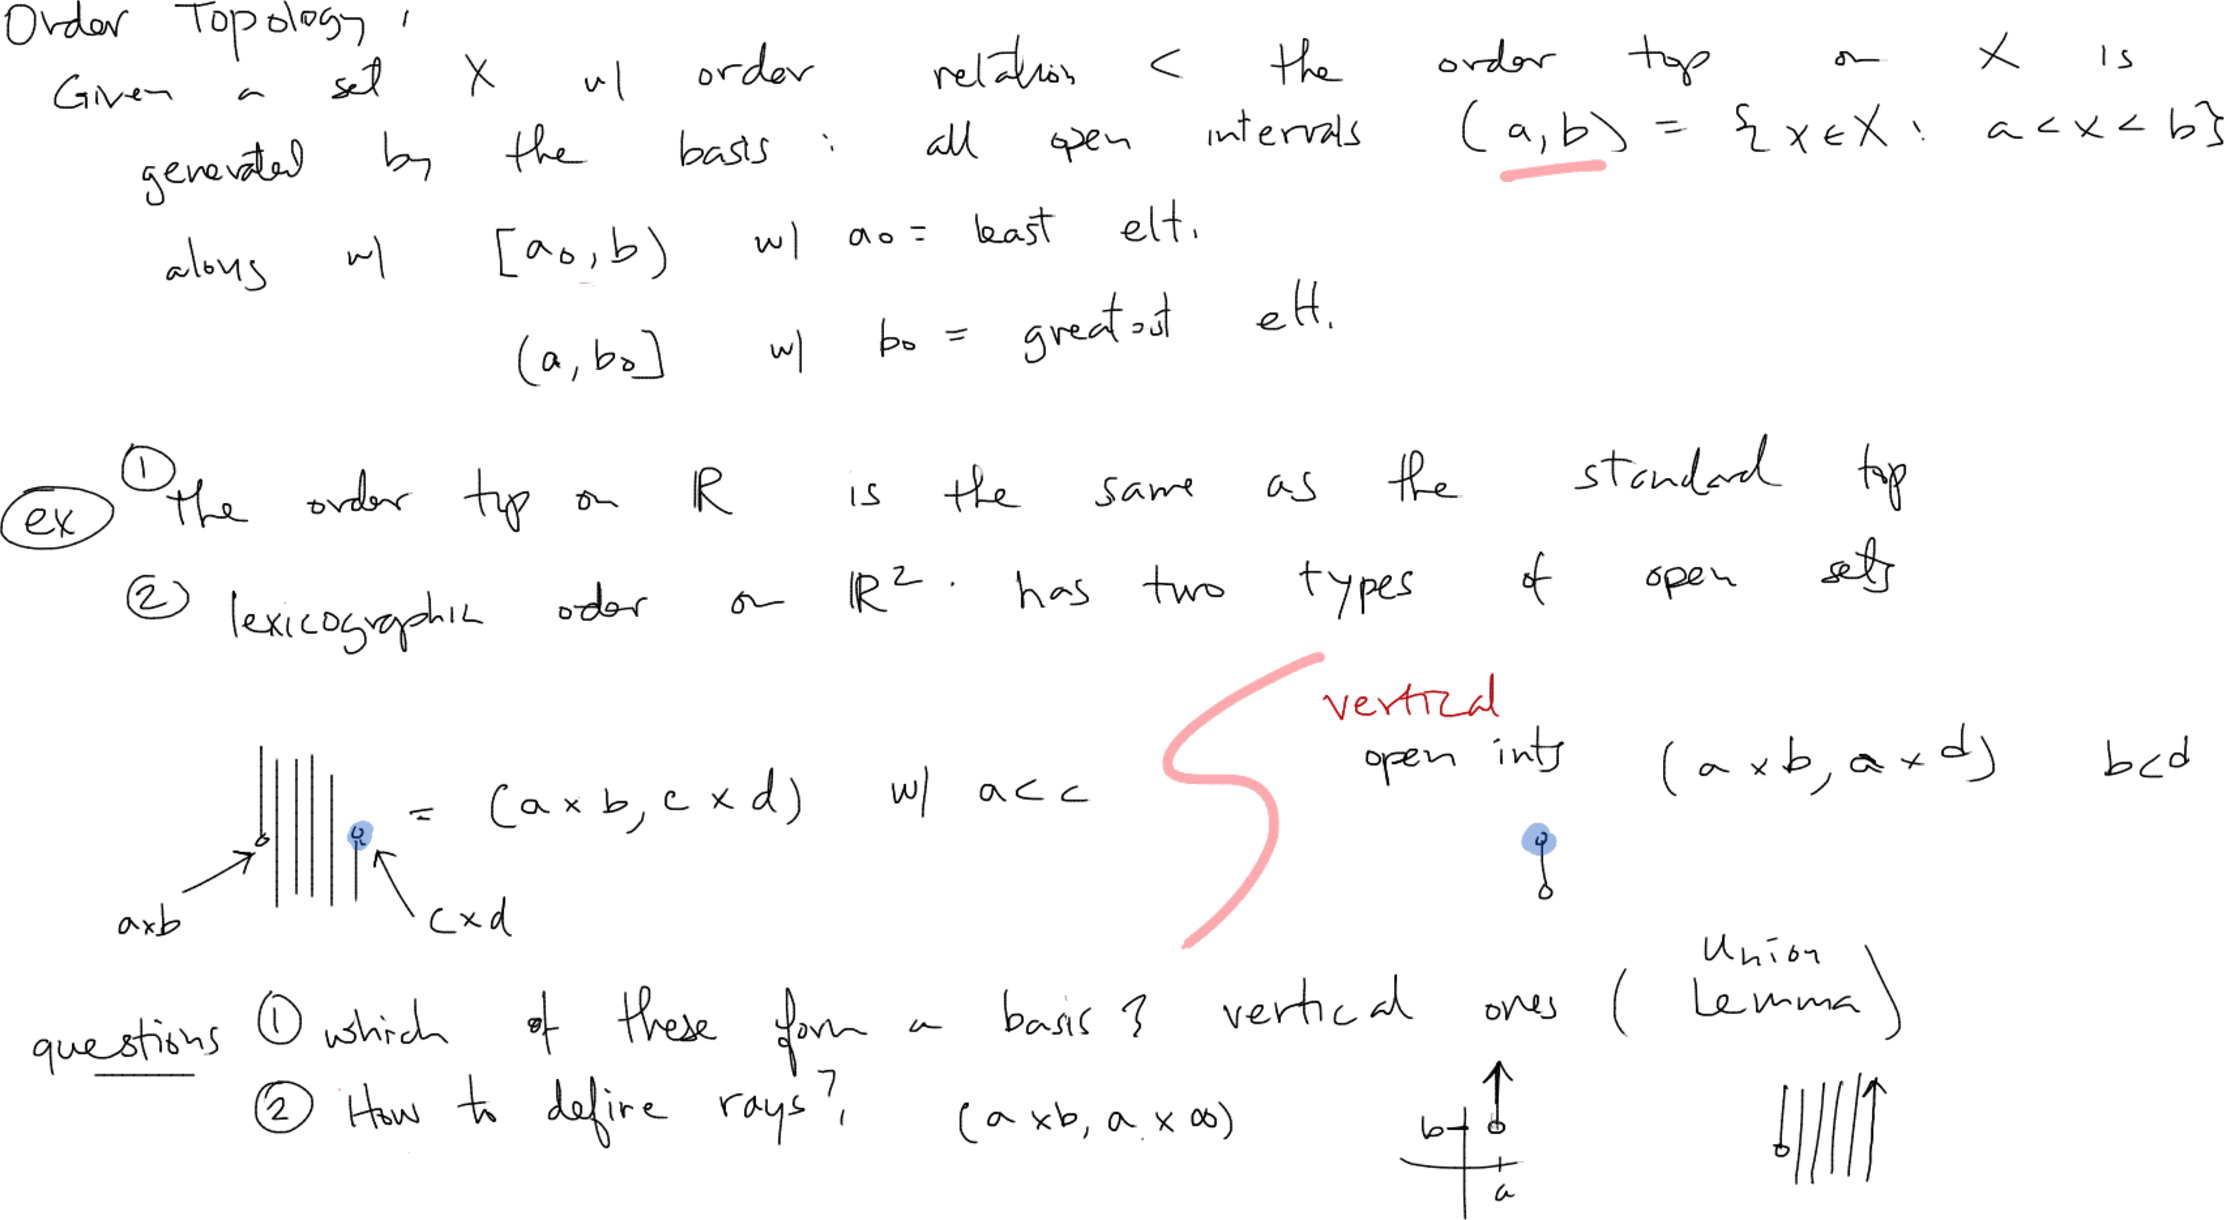 Order Topology:
Given a set X w/ order relation < the order top on X is
generated by the basis : all open intervals (a,b) = {x∈X : a<x<b}
along w/ [a₀,b) w/ a₀ = least elt.
(a,b₀] w/ b₀ = greatest elt.
ex ① the order top on ℝ is the same as the standard top
② lexicographic order on ℝ². has two types of open sets
= (a×b, c×d) w/ a<c
a×b
c×d
vertical
open ints (a×b, a×d) b<d
questions ① which of these form a basis? vertical ones (Union Lemma)
② How to define rays? (a×b, a×∞)
b
a